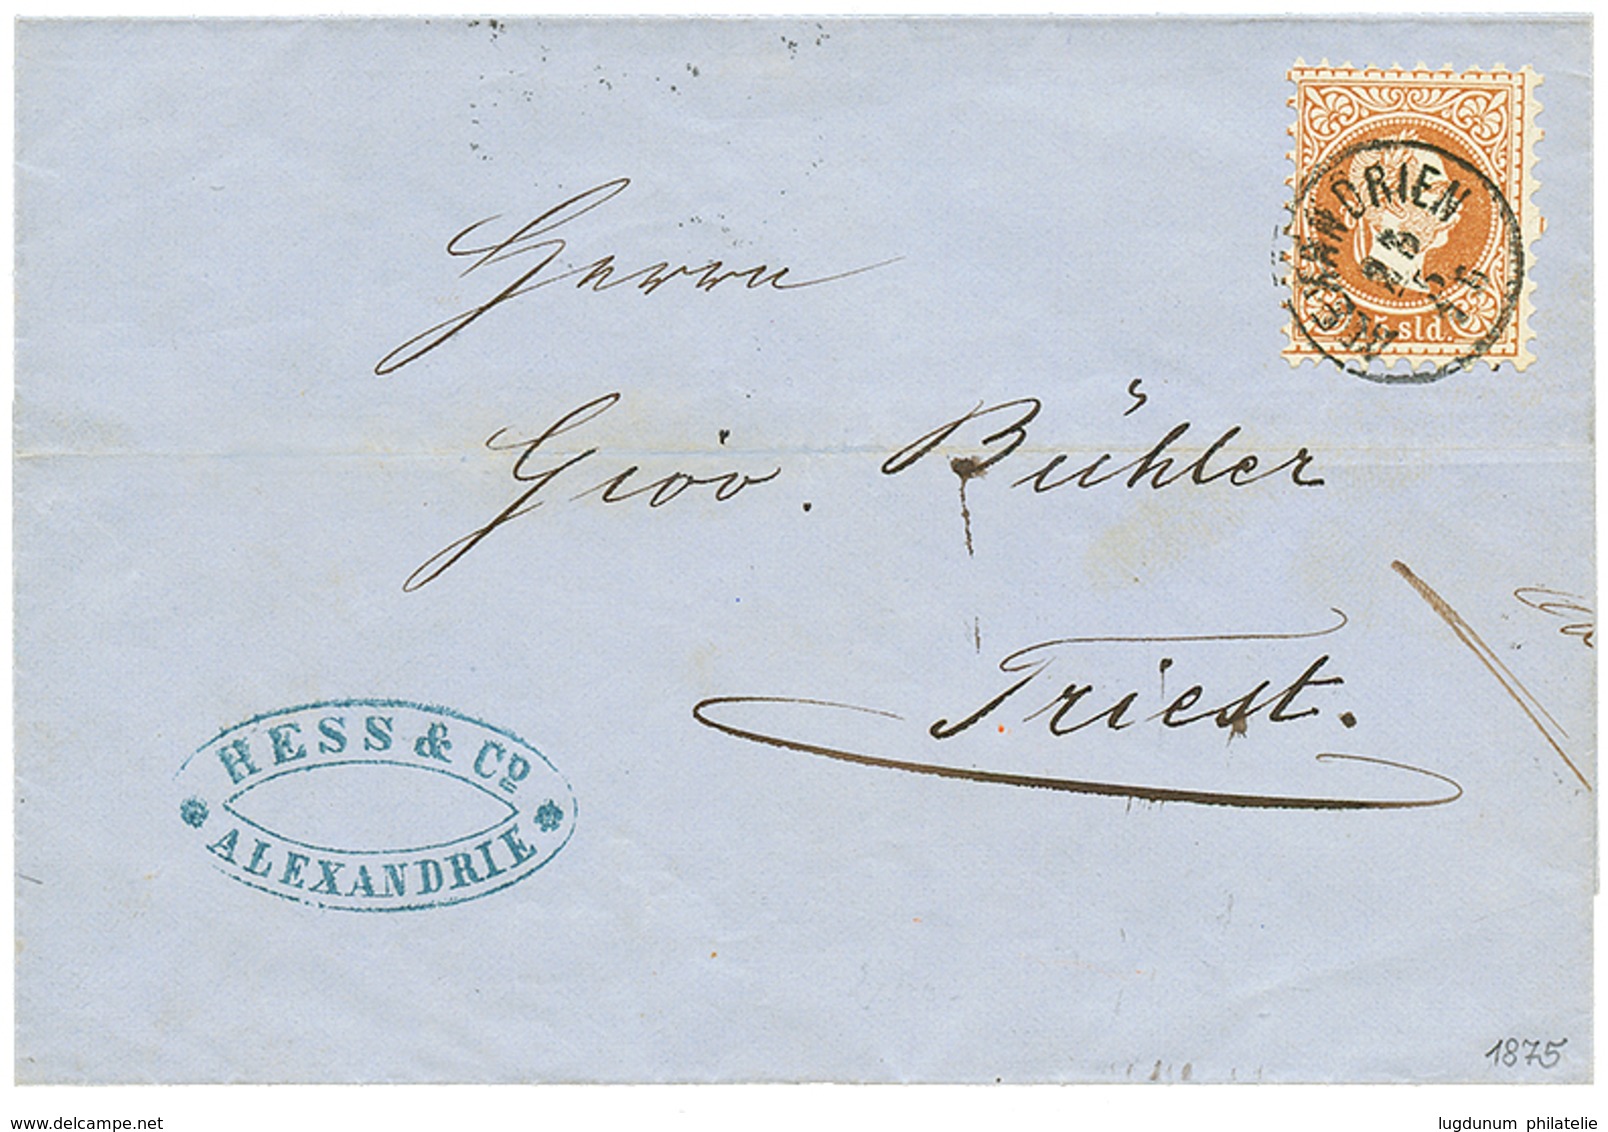 ALEXANDRIEN
23
5
75
15 sld.
Herrn
Giov. Bühler
Triest.
HESS & Co
ALEXANDRIE
1875
delcampe.net
lugdunum philatelie